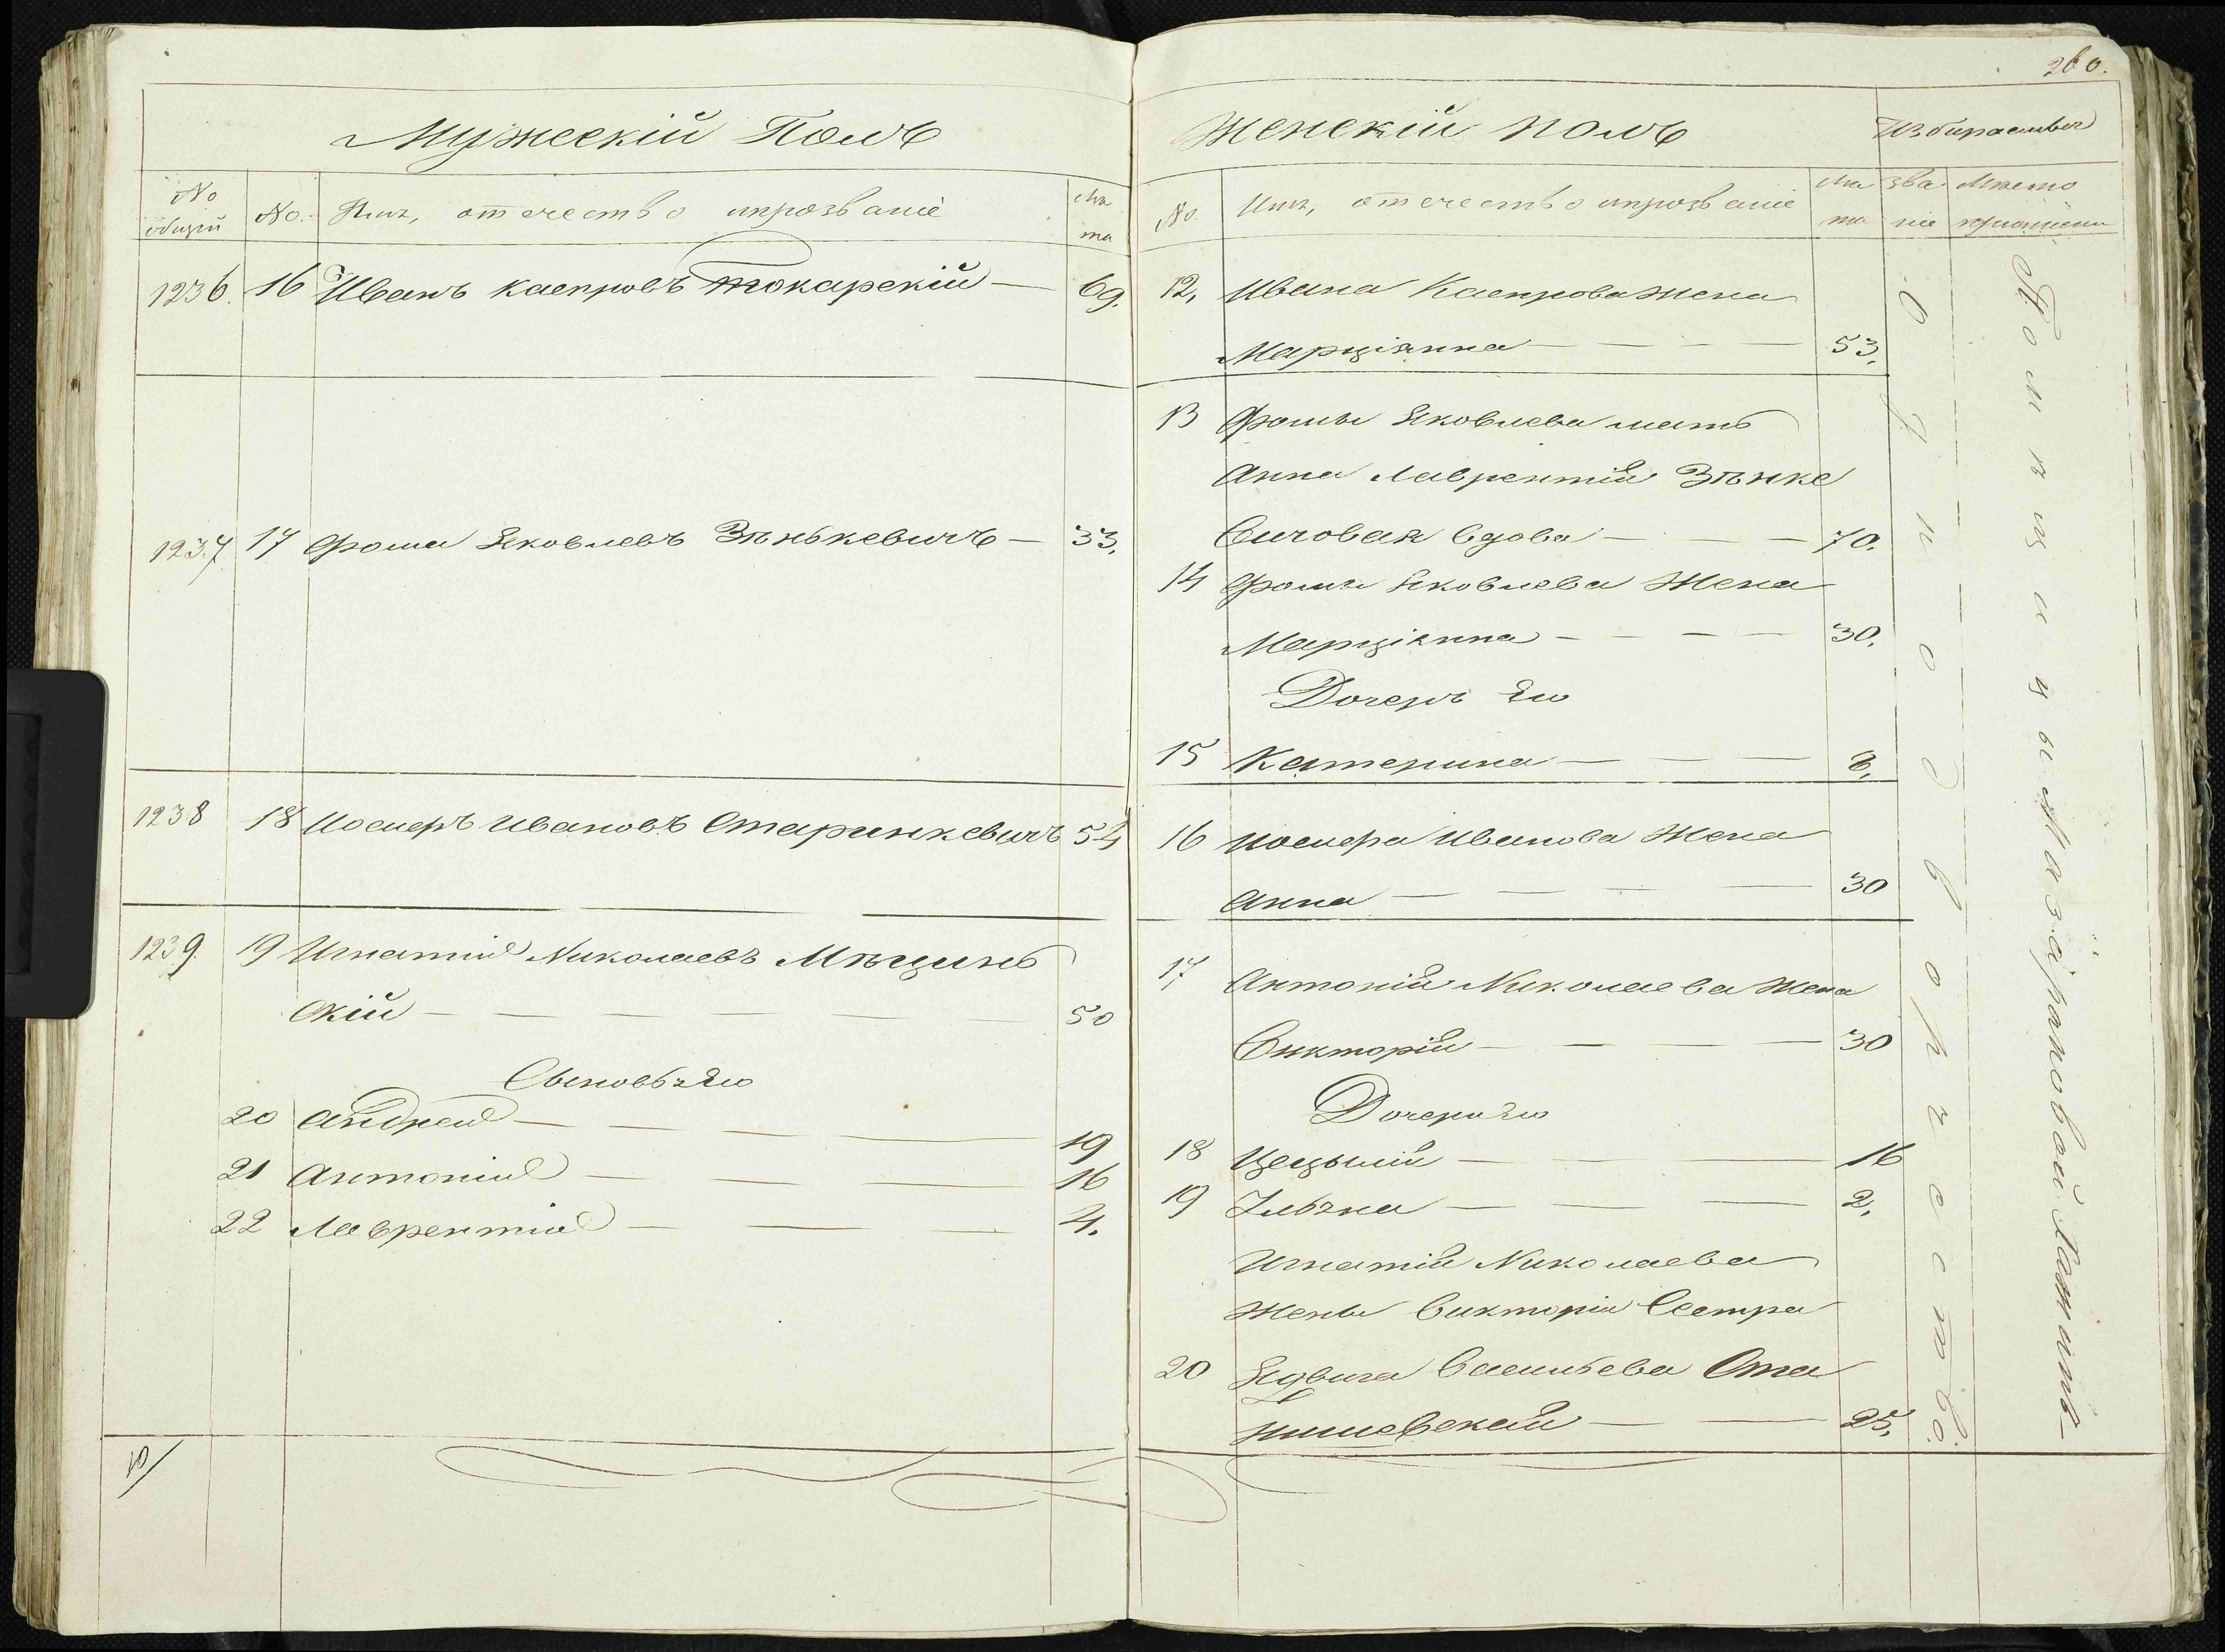 260.
Мужескій Полъ
№ общій
№.
Имя, отечество ипрозваніе
лѣ та
1236.
16
Иванъ Каспровъ Токарскій —
69.
1237
17
Фома Яковлевъ Зѣнькевичъ —
33.
1238
18
Иосифъ Ивановъ Старинкевичъ
54
1239.
19
Игнатій Николаевъ Мѣцинь
скій — — — — —
50
Сыновья Его
20
Андрей — — — —
19
21
Антоній — — — —
16
22
Лаврентій — — —
4.
Женскій полъ
Избираемыя
№.
Имя, отечество ипрозваніе
лѣ та
зва ніе
Мѣсто
12,
Ивана Каспрова жена
Марціянна — — — —
53.
13
Фомы Яковлева мать
Анна Лаврентія Зѣнке
вичовая вдова — — —
70.
14
Фомы Яковлева Жена
Марціянна — — — —
30.
Дочерь Его
15
Катерина — — —
8.
16
Иосифа Иванова Жена
Анна — — — —
30
17,
Антонія Николаева жена
Викторія — — — —
30
Дочери Его
18
Цецылія — — —
16
19
— — —
2,
Игнатія Николаева
Жены Викторіи Сестра
20
Ядвига Васильева Ста
нишевская — —
25,
Однодворчество.